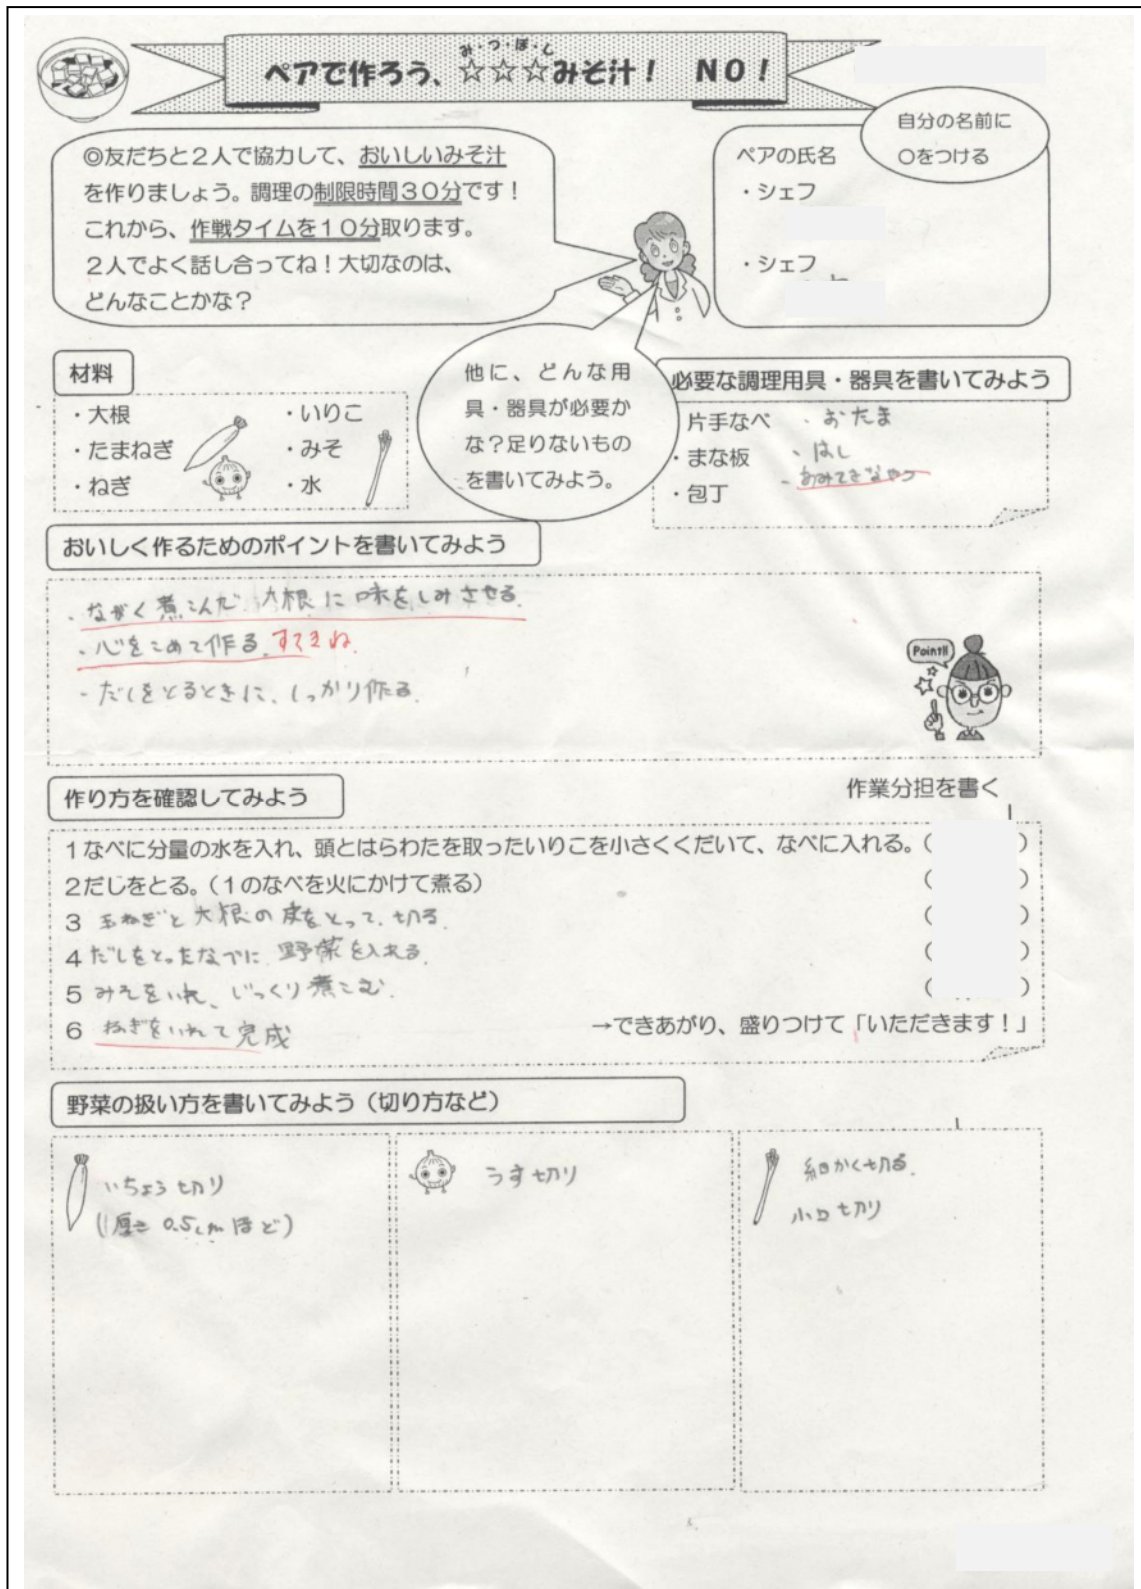 み・つ・ぼ・し
ペアで作ろう、☆☆☆みそ汁！　ＮＯ！
自分の名前に
○をつける
◎友だちと２人で協力して、おいしいみそ汁
を作りましょう。調理の制限時間３０分です！
これから、作戦タイムを１０分取ります。
２人でよく話し合ってね！大切なのは、
どんなことかな？
ペアの氏名
・シェフ
・シェフ
材料
・大根
・たまねぎ
・ねぎ
・いりこ
・みそ
・水
他に、どんな用
具・器具が必要か
な？足りないもの
を書いてみよう。
必要な調理用具・器具を書いてみよう
片手なべ
・まな板
・包丁
・おたま
・はし
・あみてきなやつ
おいしく作るためのポイントを書いてみよう
・ながく煮こんで 大根に味をしみさせる。
・心をこめて作る。すてきね。
・だしをとるときに、しっかり作る。
Point!!
作り方を確認してみよう
作業分担を書く
１なべに分量の水を入れ、頭とはらわたを取ったいりこを小さくくだいて、なべに入れる。（　）
２だしをとる。（１のなべを火にかけて煮る）（　）
３ 玉ねぎと大根の皮をとって、切る。（　）
４ だしをとったなべに、野菜を入れる。（　）
５ みそをいれ、じっくり煮こむ。（　）
６ ねぎをいれて完成 →できあがり、盛りつけて「いただきます！」
野菜の扱い方を書いてみよう（切り方など）
いちょう切り
（厚さ 0.5cmほど）
うす切り
細かく切る。
小口切り